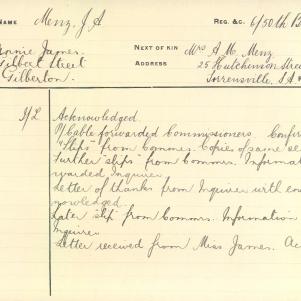 NAME Menz, J A REG. &C. 6/50th B
Annie James. NEXT OF KIN Mrs A. M. Menz
Gilbert Street ADDRESS 25 Hutchinson Stree
Gilberton. Torrensville, S.A
Acknowledged
Cable forwarded Commissioners. Confir
"Slips" from Commrs. Copies of same se
Further slips" from Commrs. Informat
warded Inquirer
Letter of thanks from Inquirer with en
nowledged.
Later slip from Commrs. Information
Inquirer
Letter received from Miss James. Ac